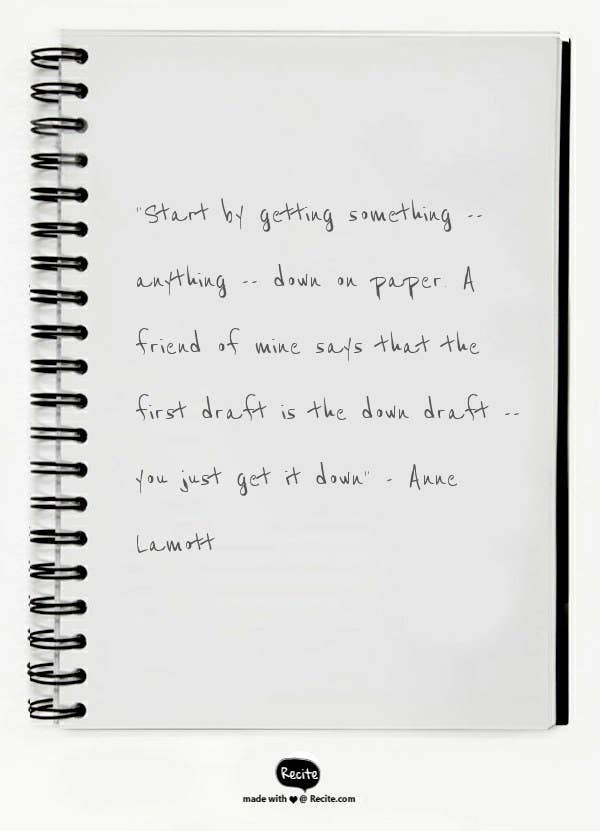 "Start by getting something --
anything -- down on paper. A
friend of mine says that the
first draft is the down draft --
you just get it down" - Anne
Lamott
Recite
made with ♥ @ Recite.com